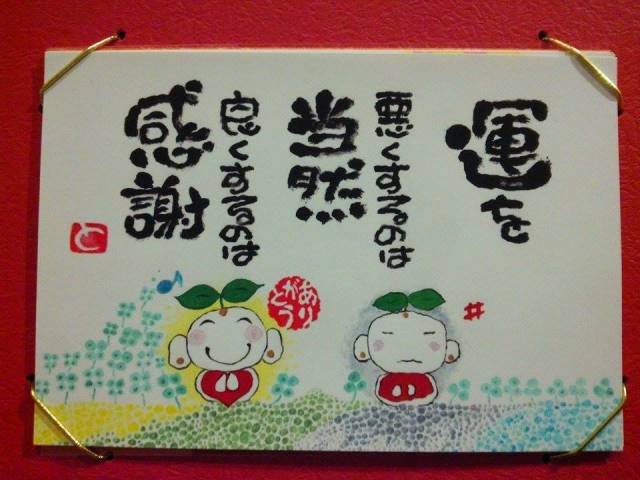 運を
悪くするのは
当然
良くするのは
感謝
ありがとう
と